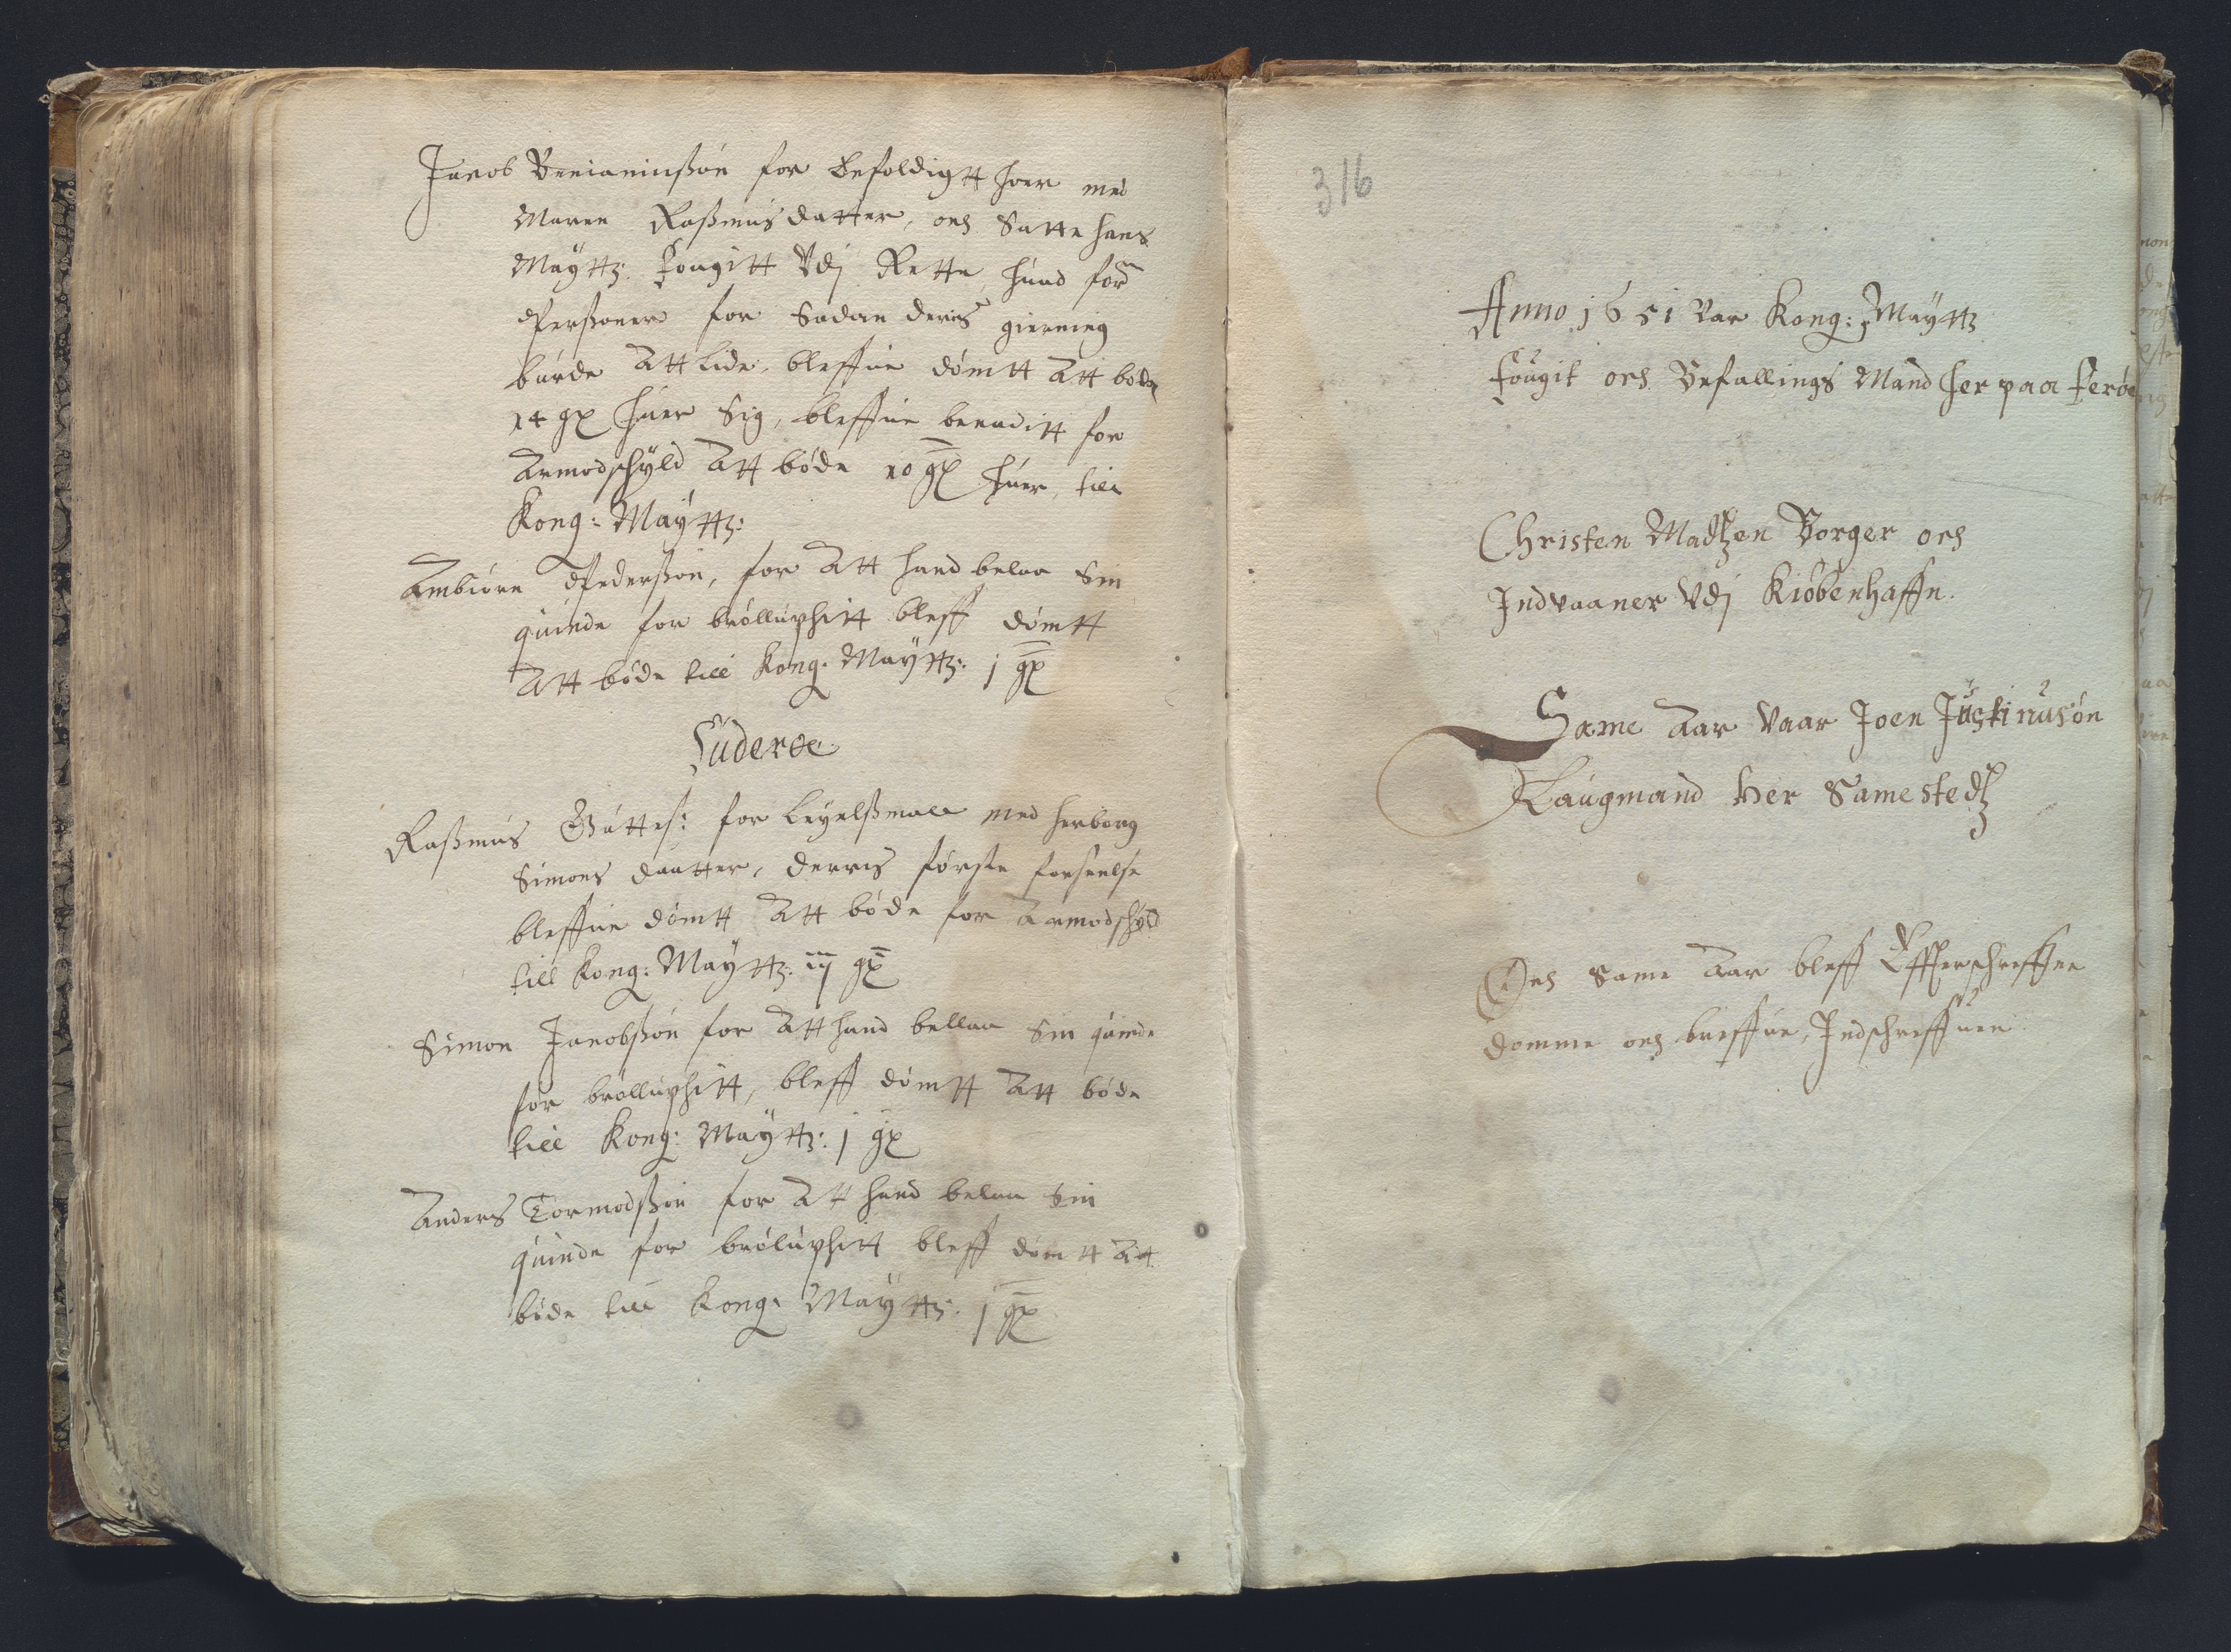 Jacob Beniaminßøn for befoldigtt hoer med
Maren Raßmusdatter, och Satte hans
Maÿttz: Fougitt Vdj Rette, huad ford
Perßoner for Sadan deris gierning
burde Att lide, bleffue dømtt Att bøde
14 gx huer Sig, bleffue benaditt for
Armodschÿld Att bøde 10 gx huer, till
Kong: Maÿttz:
Ambiørn Pederßøn, for Att hand belaa Sin
quinde for brølluphitt bleff dømtt
Att bøde till Kong: Maÿttz: j gx
Suderøe
Raßmus Guttes: for Leyelßmall med herborg
Simons daatter, derris første forseelse
bleffue dømtt Att bøde for Armodschÿld
till Kong: Maÿttz: iij gx
Simon Jacobßøn for Att hand bellaa Sin quinde
for brølluphitt, bleff dømtt Att bøde
till Kong: Maÿttz: j gx
Anders Tormodßøn for Att hand belaa Sin
quinde for brøluphitt bleff dømtt Att
bøde till Kong: Maÿttz: j gx
316
Anno 1651 Var Kong: Maÿttz
Fougit och Befallings Mand her paa Ferøe
Christen Madtzen Borger och
Indvaaner Vdj Kiøbenhaffn.
Same Aar Vaar Joen Justinusøn
Laugmand her Samestedtz
Och Same Aar bleff Effterschreffne
domme och breffue, Indschreffuen